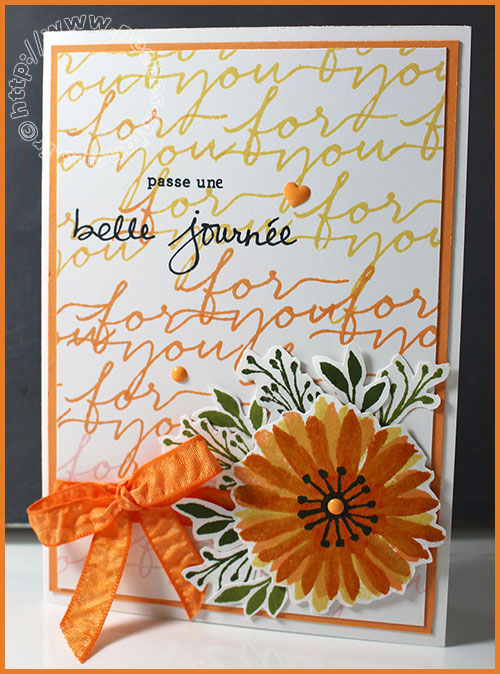 © http://www.
for for for
you you you
for for for
you you you
passe une
for for
belle journée
you you
for for
you you you
for for for
you you
for
you
for
you
for